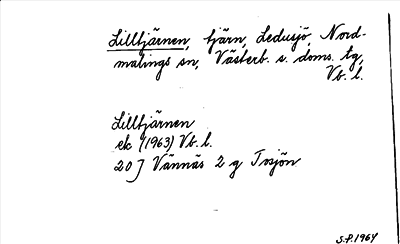 Lilltjärnen, tjärn, Ledusjö, Nord-
malings sn, Västerb. s. doms. tg,
Vb. l.
Lilltjärnen
ek (1963) Vb. l.
20 J Vännäs 2 g Tosjön
S.P. 1964